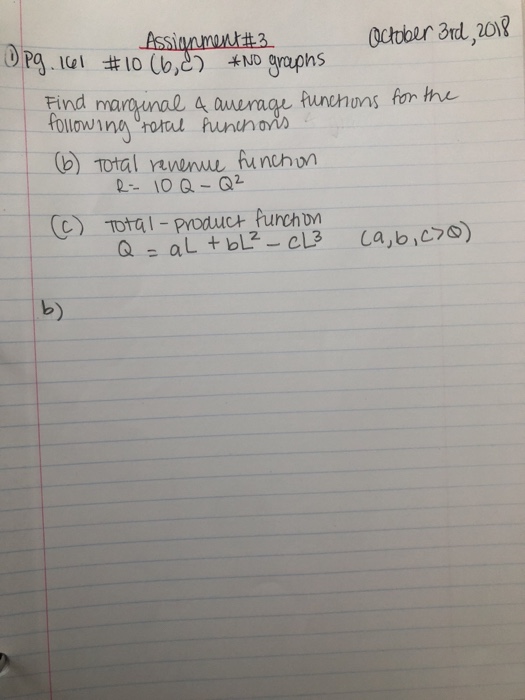 Assignment #3 October 3rd, 2018
① Pg. 161 #10 (b,c) *NO graphs
Find marginal & average functions for the
following total functions
(b) Total revenue function
R = 10Q - Q²
(c) Total-product function
Q = aL + bL² - cL³ (a,b,c>0)
b)